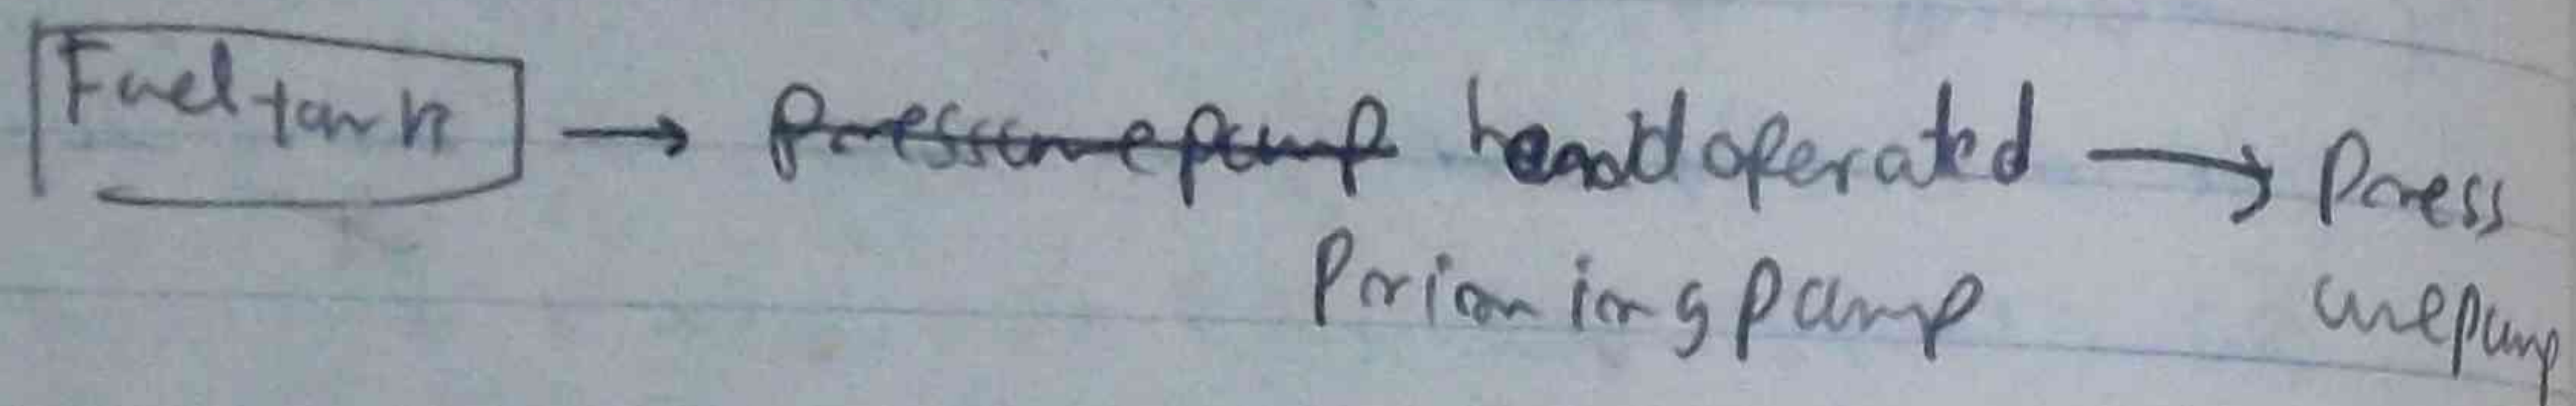 Fuel tank → ~~Pressure pump~~ hand operated → Press
Priming pump ure pump